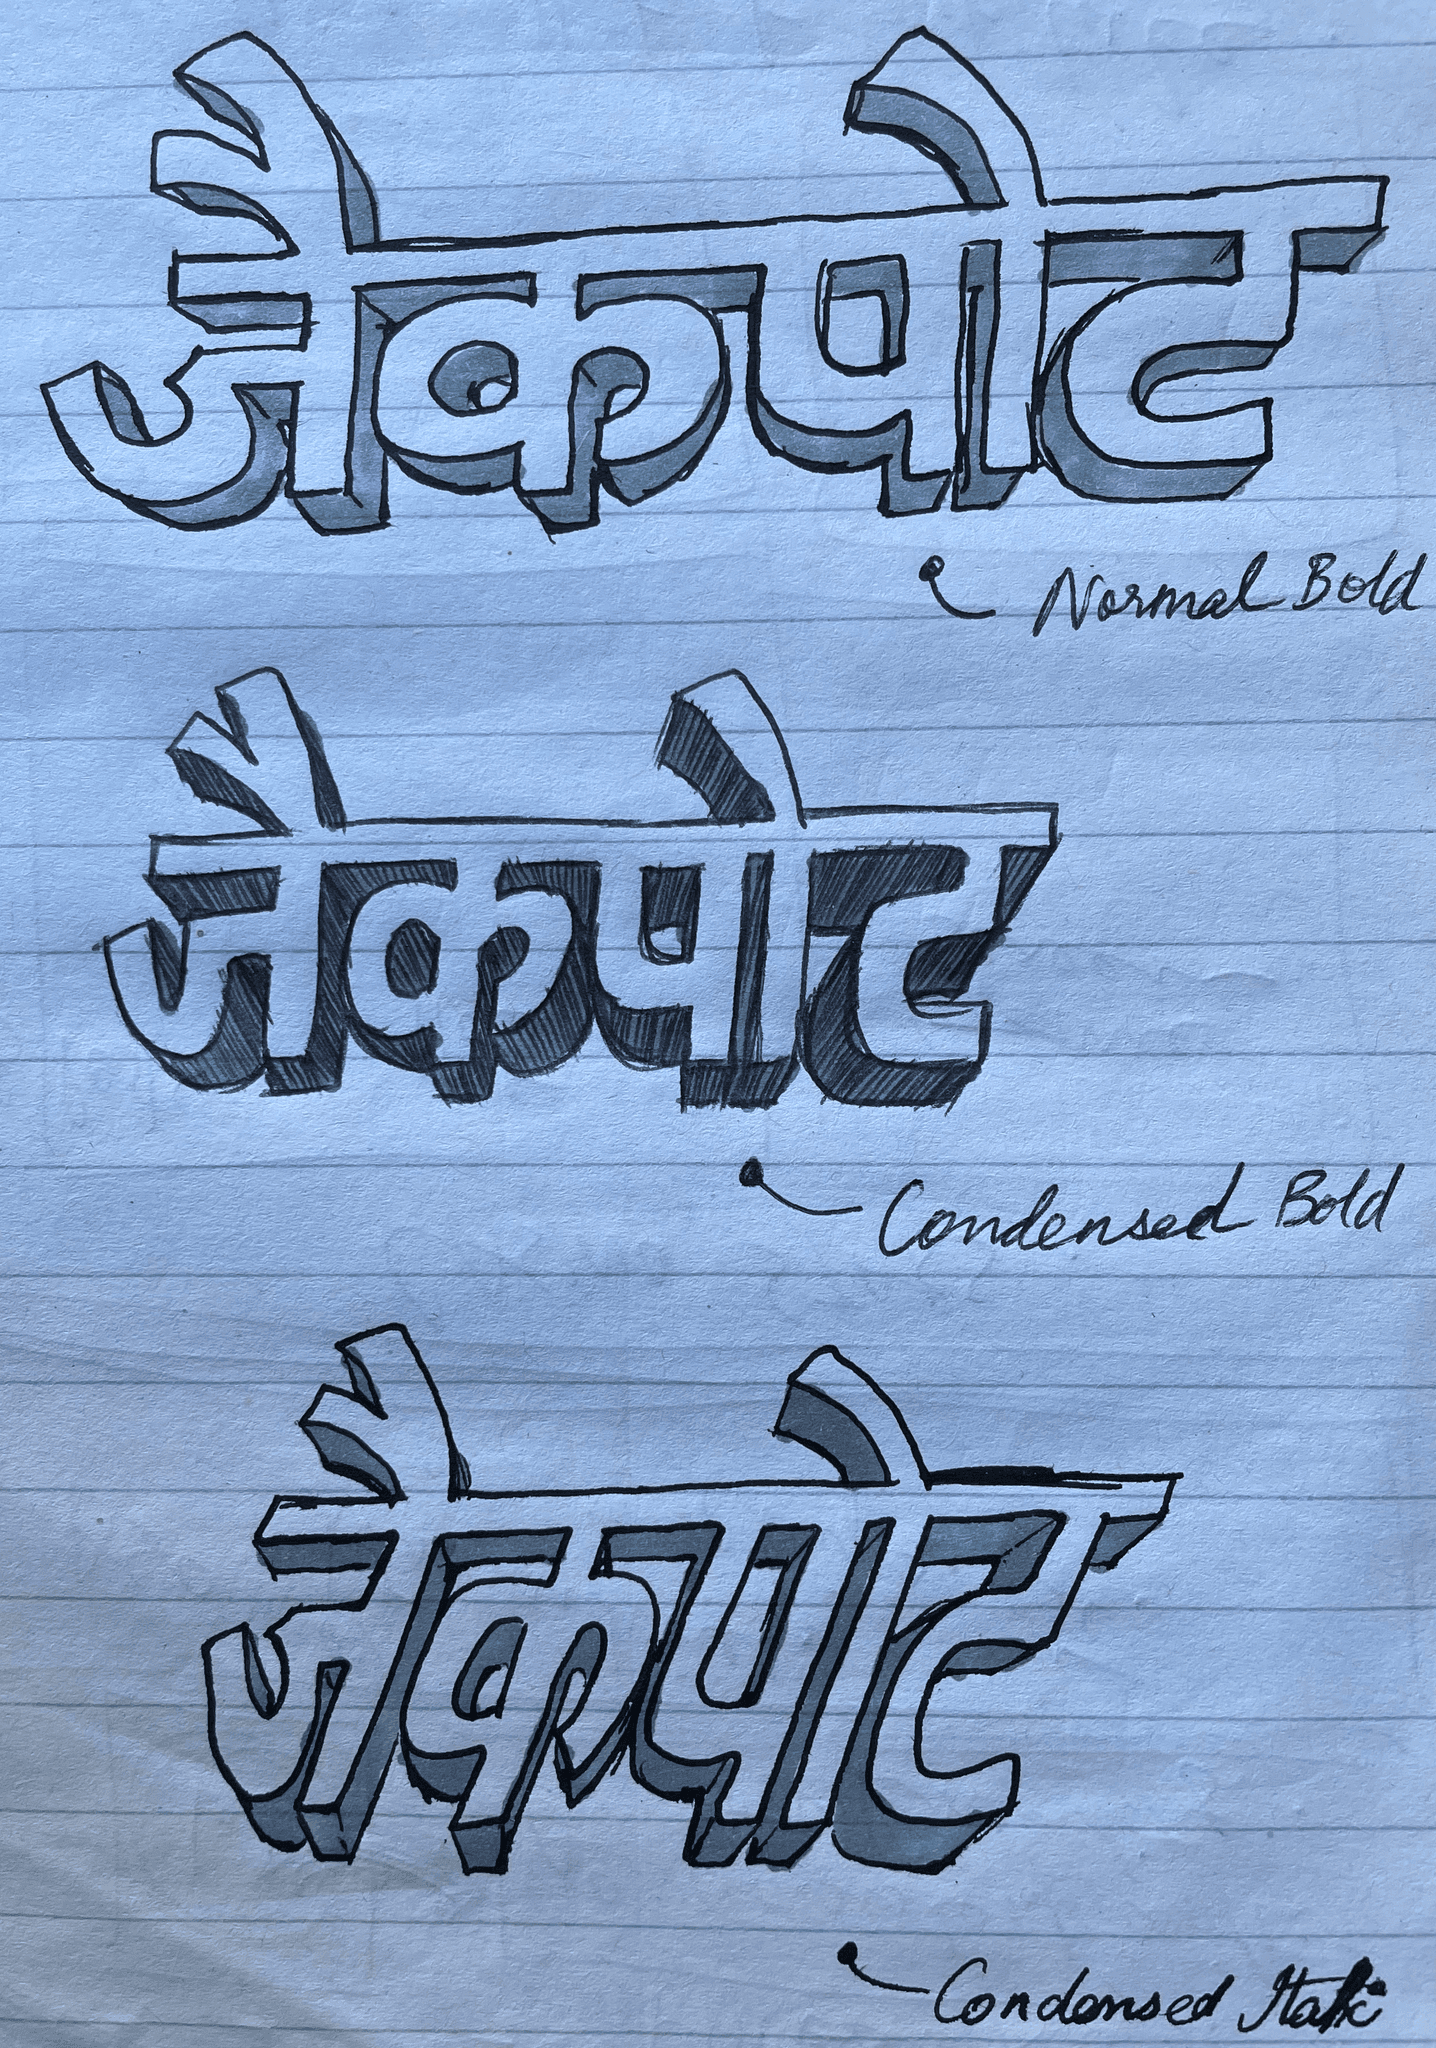 जैकपोट
Normal Bold
जैकपोट
Condensed Bold
जैकपोट
Condensed Italic